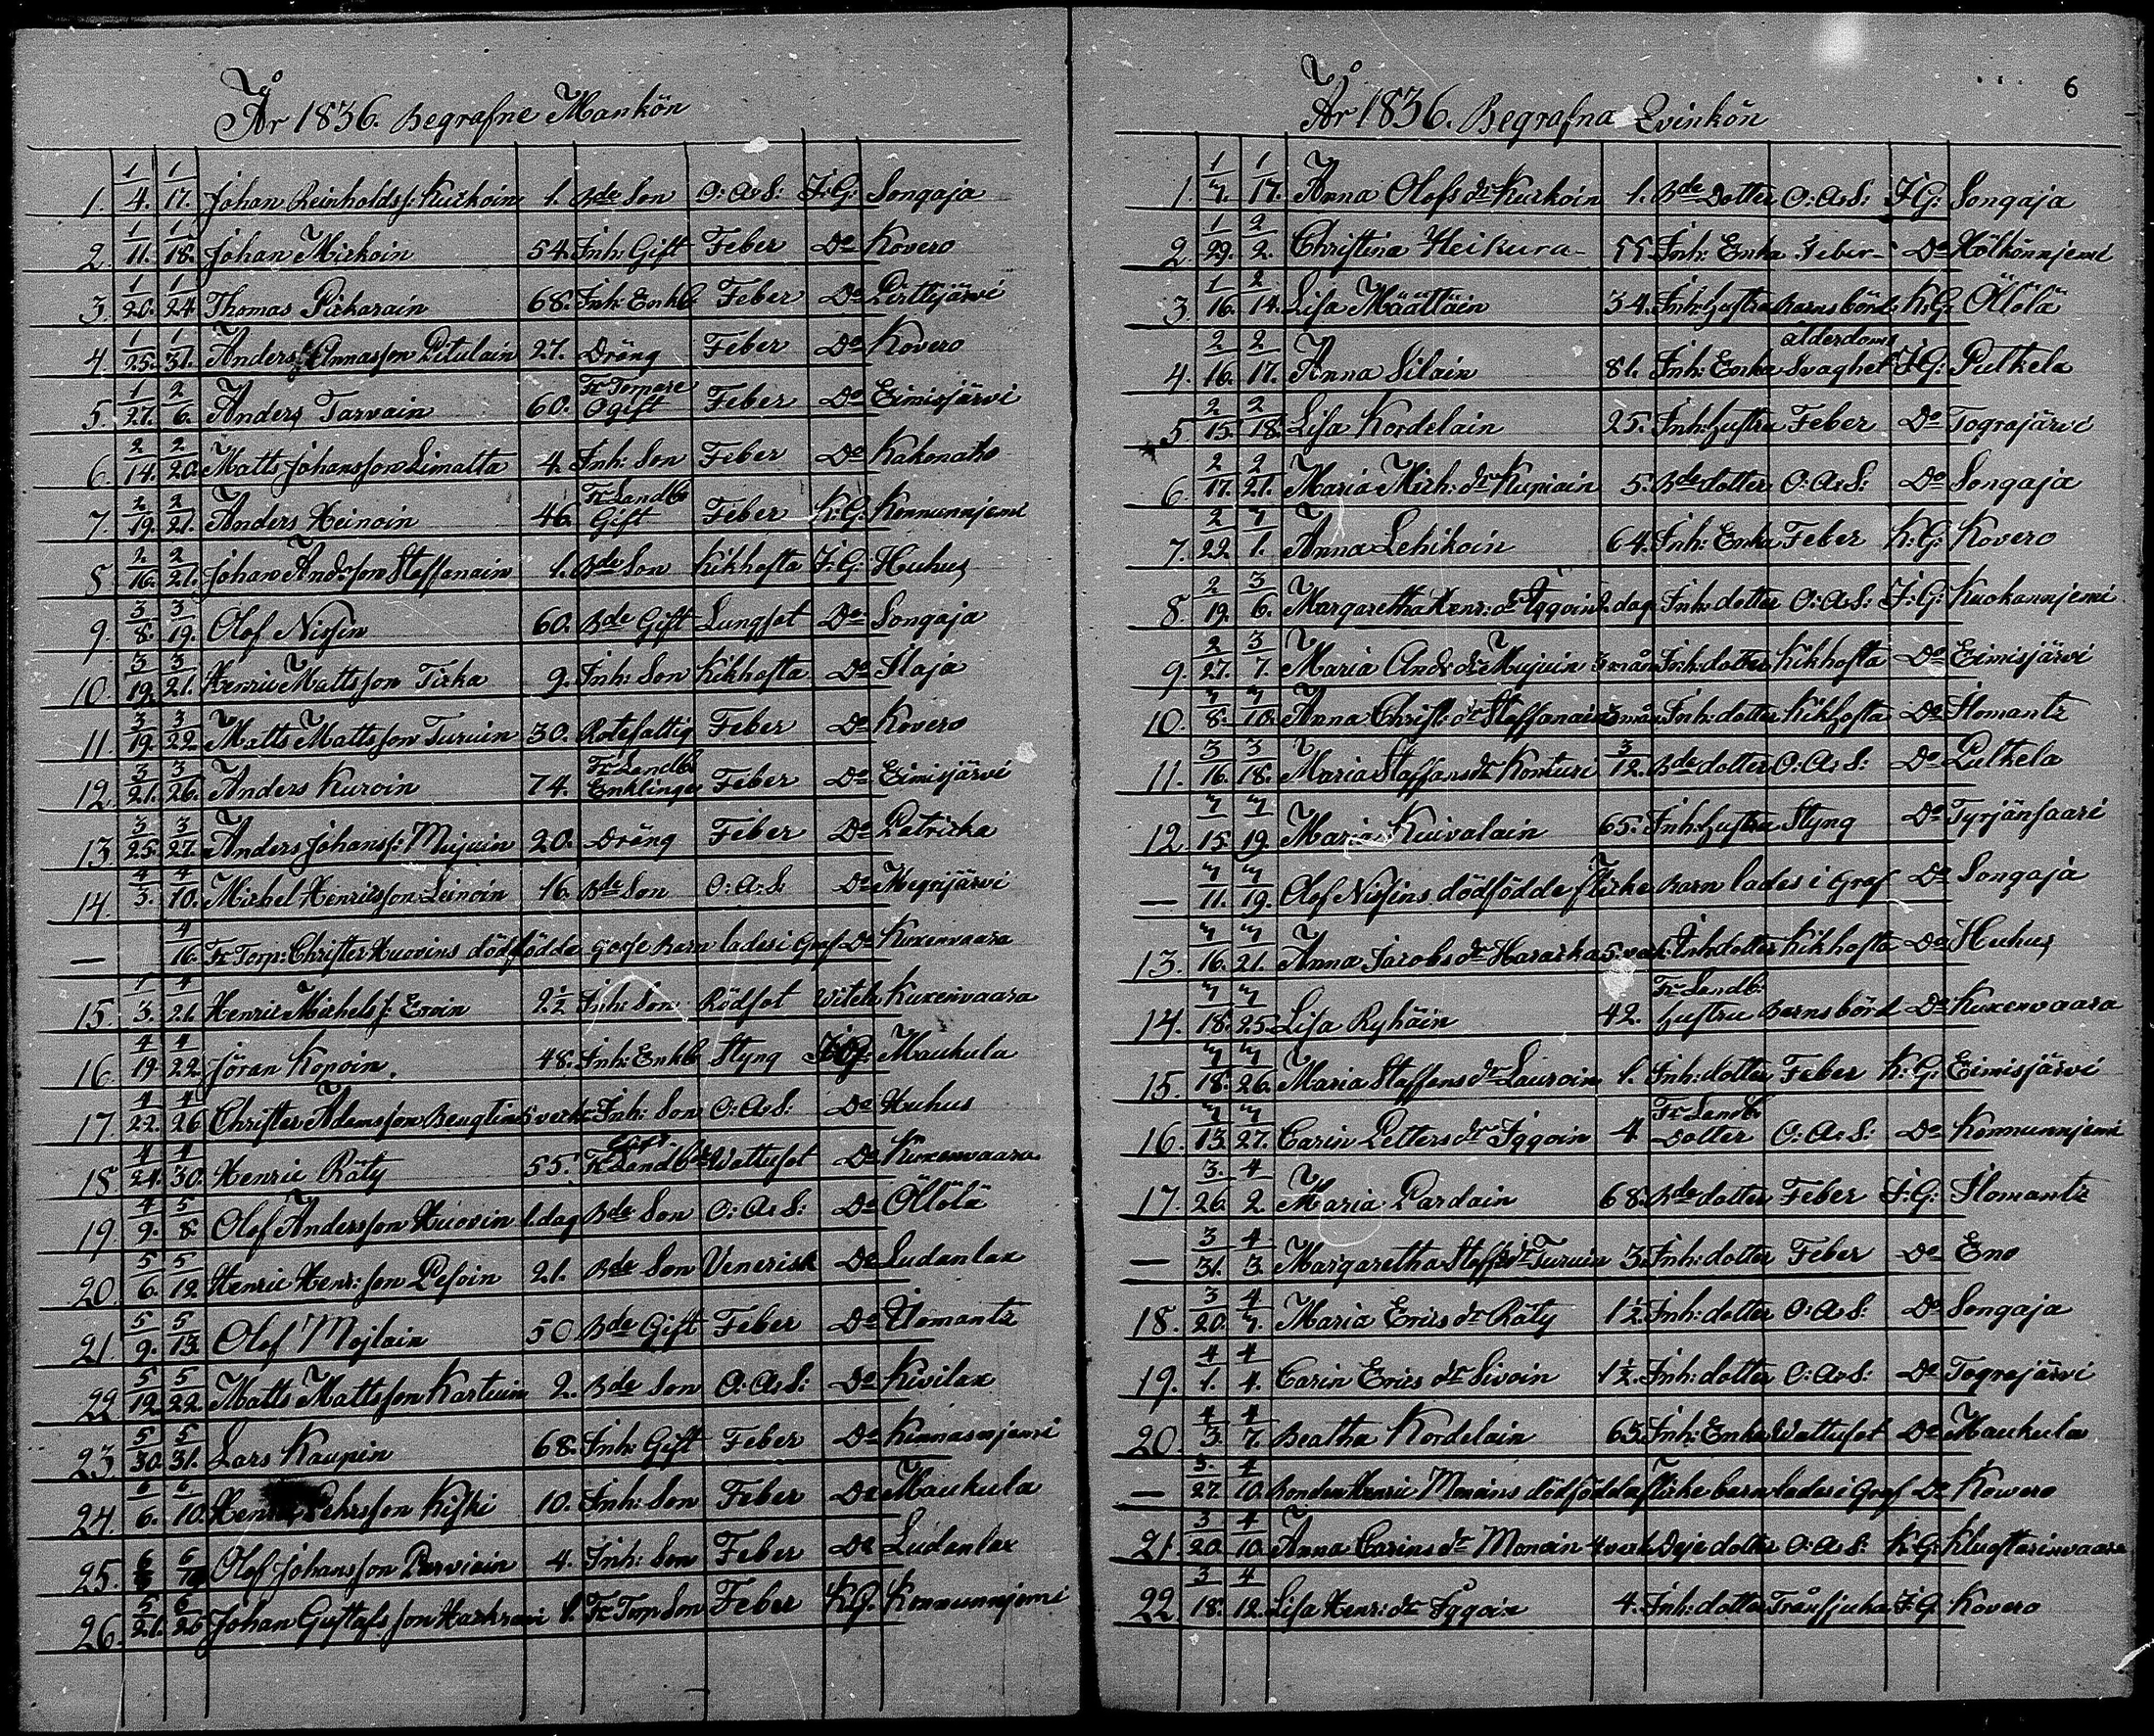 År 1836. Begrafne Mankön
1. 1/4. 1/17. Johan Reinholds s: Kurkoin 1. Bde Son O: A: S: F: G: Songaja
2. 1/11. 1/18. Johan Mirkoin 54. Inh: Gift Feber Do Kovero
3. 1/20. 1/24 Thomas Pirkarain 68. Inh: Enkl. Feber Do Pirttijärvi
4. 1/25. 1/31. Anders Annasson Pitulain 27. Dräng Feber Do Kovero
5. 1/27. 2/6. Anders Tarvain 60. Fr Torpare Ogift Feber Do Eimisjärvi
6. 2/14. 2/20. Matts Johansson Limatta 4. Inh: Son Feber Do Kakonaho
7. 2/19. 2/21. Anders Heinoin 46. Fr Landb. Gift Feber K: G: Konnunnjemi
8 2/16. 2/21. Johan Andersson Staffanain 1. Bde Son Kikhosta F: G: Huhus
9. 3/8. 3/19. Olof Nissin 60. Bde Gift Lungsot Do Songaja
10. 3/19. 3/21. Henric Mattsson Tirka 9. Inh: Son Kikhosta Do Ilaja
11. 3/19. 3/22. Matts Mattsson Turuin 30. Rotefattig Feber Do Kovero
12. 3/21. 3/26. Anders Kuroin 74. Fr Landb. Enkling Feber Do Eimisjärvi
13. 3/25. 3/27. Anders Johans s: Mujuin 20. Dräng Feber Do Patricka
14. 4/3. 4/10. Michel Henricsson Leinoin 16. Bde Son O: A: S: Do Megrijärvi
— 4/16. Fr Torp: Christer Huovins dödfödde gosse Barn lades i Graf Do Kuxenvaara
15. 1/3. 4/21. Henric Michels s: Eroin 2 1/2 Inh: Son Rödsot Kuxenvaara
16. 4/19 4/22. Jöran Kopoin. 48. Inh: Enkl. Styng F: G: Maukula
17. 4/22. 4/26 Christer Adamsson Bengtin 5 veck Inh: Son O: A: S: Do Huhus
18. 4/24. 4/30. Henric Räty 55. Gift Fr Landb. Wattusot Do Kuxenvaara
19. 4/9. 5/8. Olof Andersson Huovin 1. dag Bde Son O: A: S: Do Öllölä
20. 5/6. 5/12. Henric Henr: son Pesoin 21. Bde Son Venerisk Do Ludanlax
21. 5/9. 5/13. Olof Mojlain 50. Bde Gift Feber Do Ilomantz
22 5/12. 5/22. Matts Mattsson Kartuin 2. Bde Son O: A: S: Do Kivilax
23 5/30. 5/31. Lars Kaupin 68. Inh: Gift Feber Do Kinnasnjemi
24 6/6. 6/10. Henric Pehrsson Kiski 10. Inh: Son Feber Do Maukula
25. Olof Johansson Parviain 4. Inh: Son Feber Do Ludanlax
26. 5/21. 6/26 Johan Gustafs son 1. Fr Torp Son Feber K: G. Konnunnjemi
6
År 1836. Begrafna Qvinkön
1. 1/7. 1/17. Anna Olofs dr Kurkoin 1. Bde Dotter O: A: S: F: G: Songaja
2. 1/29. 2/2. Christina Heikura 55 Inh: Enka Feber Do Hölkönnjemi
3. 1/16. 2/14. Lisa Määttäin 34. Inh: hustru Barnsbörd K: G: Öllölä
4. 2/16. 2/17. Anna Silain 81. Inh: Enka ålderdoms Svaghet F: G: Putkela
5 2/15. 2/18. Lisa Kordelain 25. Inh: hustru Feber Do Tograjärvi
6. 2/17. 2/21. Maria Mich: dr Kupiain 5. Bde dotter O: A: S: Do Songaja
7. 2/22. 3/1. Anna Lehikoin 64. Inh: Enka Feber K: G: Kovero
8. 2/19. 3/6. Margaretha Henr: dr Iggoin dag Inh: dotter O: A: S: F: G: Kuokannjemi
9. 2/27. 3/7. Maria And: dr Mujuin 3 mån Inh: dotter Kikhosta Do Eimisjärvi
10. 3/8. 3/10. Anna Christ: dr Staffanain mån Inh: dotter Kikhosta Do Ilomantz
11. 3/16. 3/18. Maria Staffans dr Konturi 3/12. Bde dotter O: A: S: Do Putkela
12 3/15. 3/19. Maria Kuivalain 65. Inh: hustru Styng Do Tyrjänsaari
— 3/11. 3/19. Olof Nissins dödfödde flicke Barn lades i Graf Do Songaja
13. 3/16. 3/21. Anna Jacobs dr Hararka 5. veck: Inh: dotter Kikhosta Do Huhus
14. 3/18. 3/25. Lisa Ryhäin 42. Fr Landb: hustru Barnsbörd Do Kuxenvaara
15. 3/18. 3/26. Maria Staffans dr Lauroin 1. Inh: dotter Feber K: G: Eimisjärvi
16. 3/13. 3/27. Carin Petters dr Iggoin 4. Fr Landb. Dotter O: A: S: Do Konnunnjemi
17. 3/26. 4/2. Maria Pardain 68. Bde dotter Feber F: G: Ilomantz
— 3/31. 4/3. Margaretha Staff: dr Turuin 3. Inh: dotter Feber Do Eno
18. 3/20. 4/7. Maria Erics dr Räty 1 1/2 Inh: dotter O: A: S: Do Songaja
19. 4/1. 4/4. Carin Erics dr Sivoin 1 1/2. Inh: dotter O: A: S: Do Tograjärvi
20. 4/3. 4/7. Beatha Kordelain 63. Inh: Enka Wattusot Do Maukula
— 3/27. 4/10. Bonden Henric Monains dödfödda flicke barn lades i Graf Do Kowero
21 3/20. 4/10. Anna Carins dr Monain 4 veck Deje dotter O: A: S: K: G:
22. 3/18. 4/12. Lisa Henr: dr Iggoin 4. Inh: dotter Trånsjuka F: G: Kovero